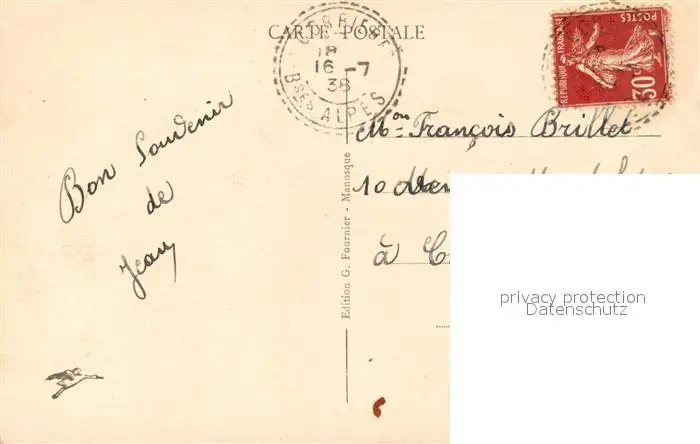 CARTE POSTALE
18
16 -7
38
Bses ALPES
POSTES
REPUBLIQUE FRANÇAISE
30c
Mon François Brillet
10
à
Bon Souvenir
de
Jean
Edition G. Fournier - Manosque
privacy protection
Datenschutz